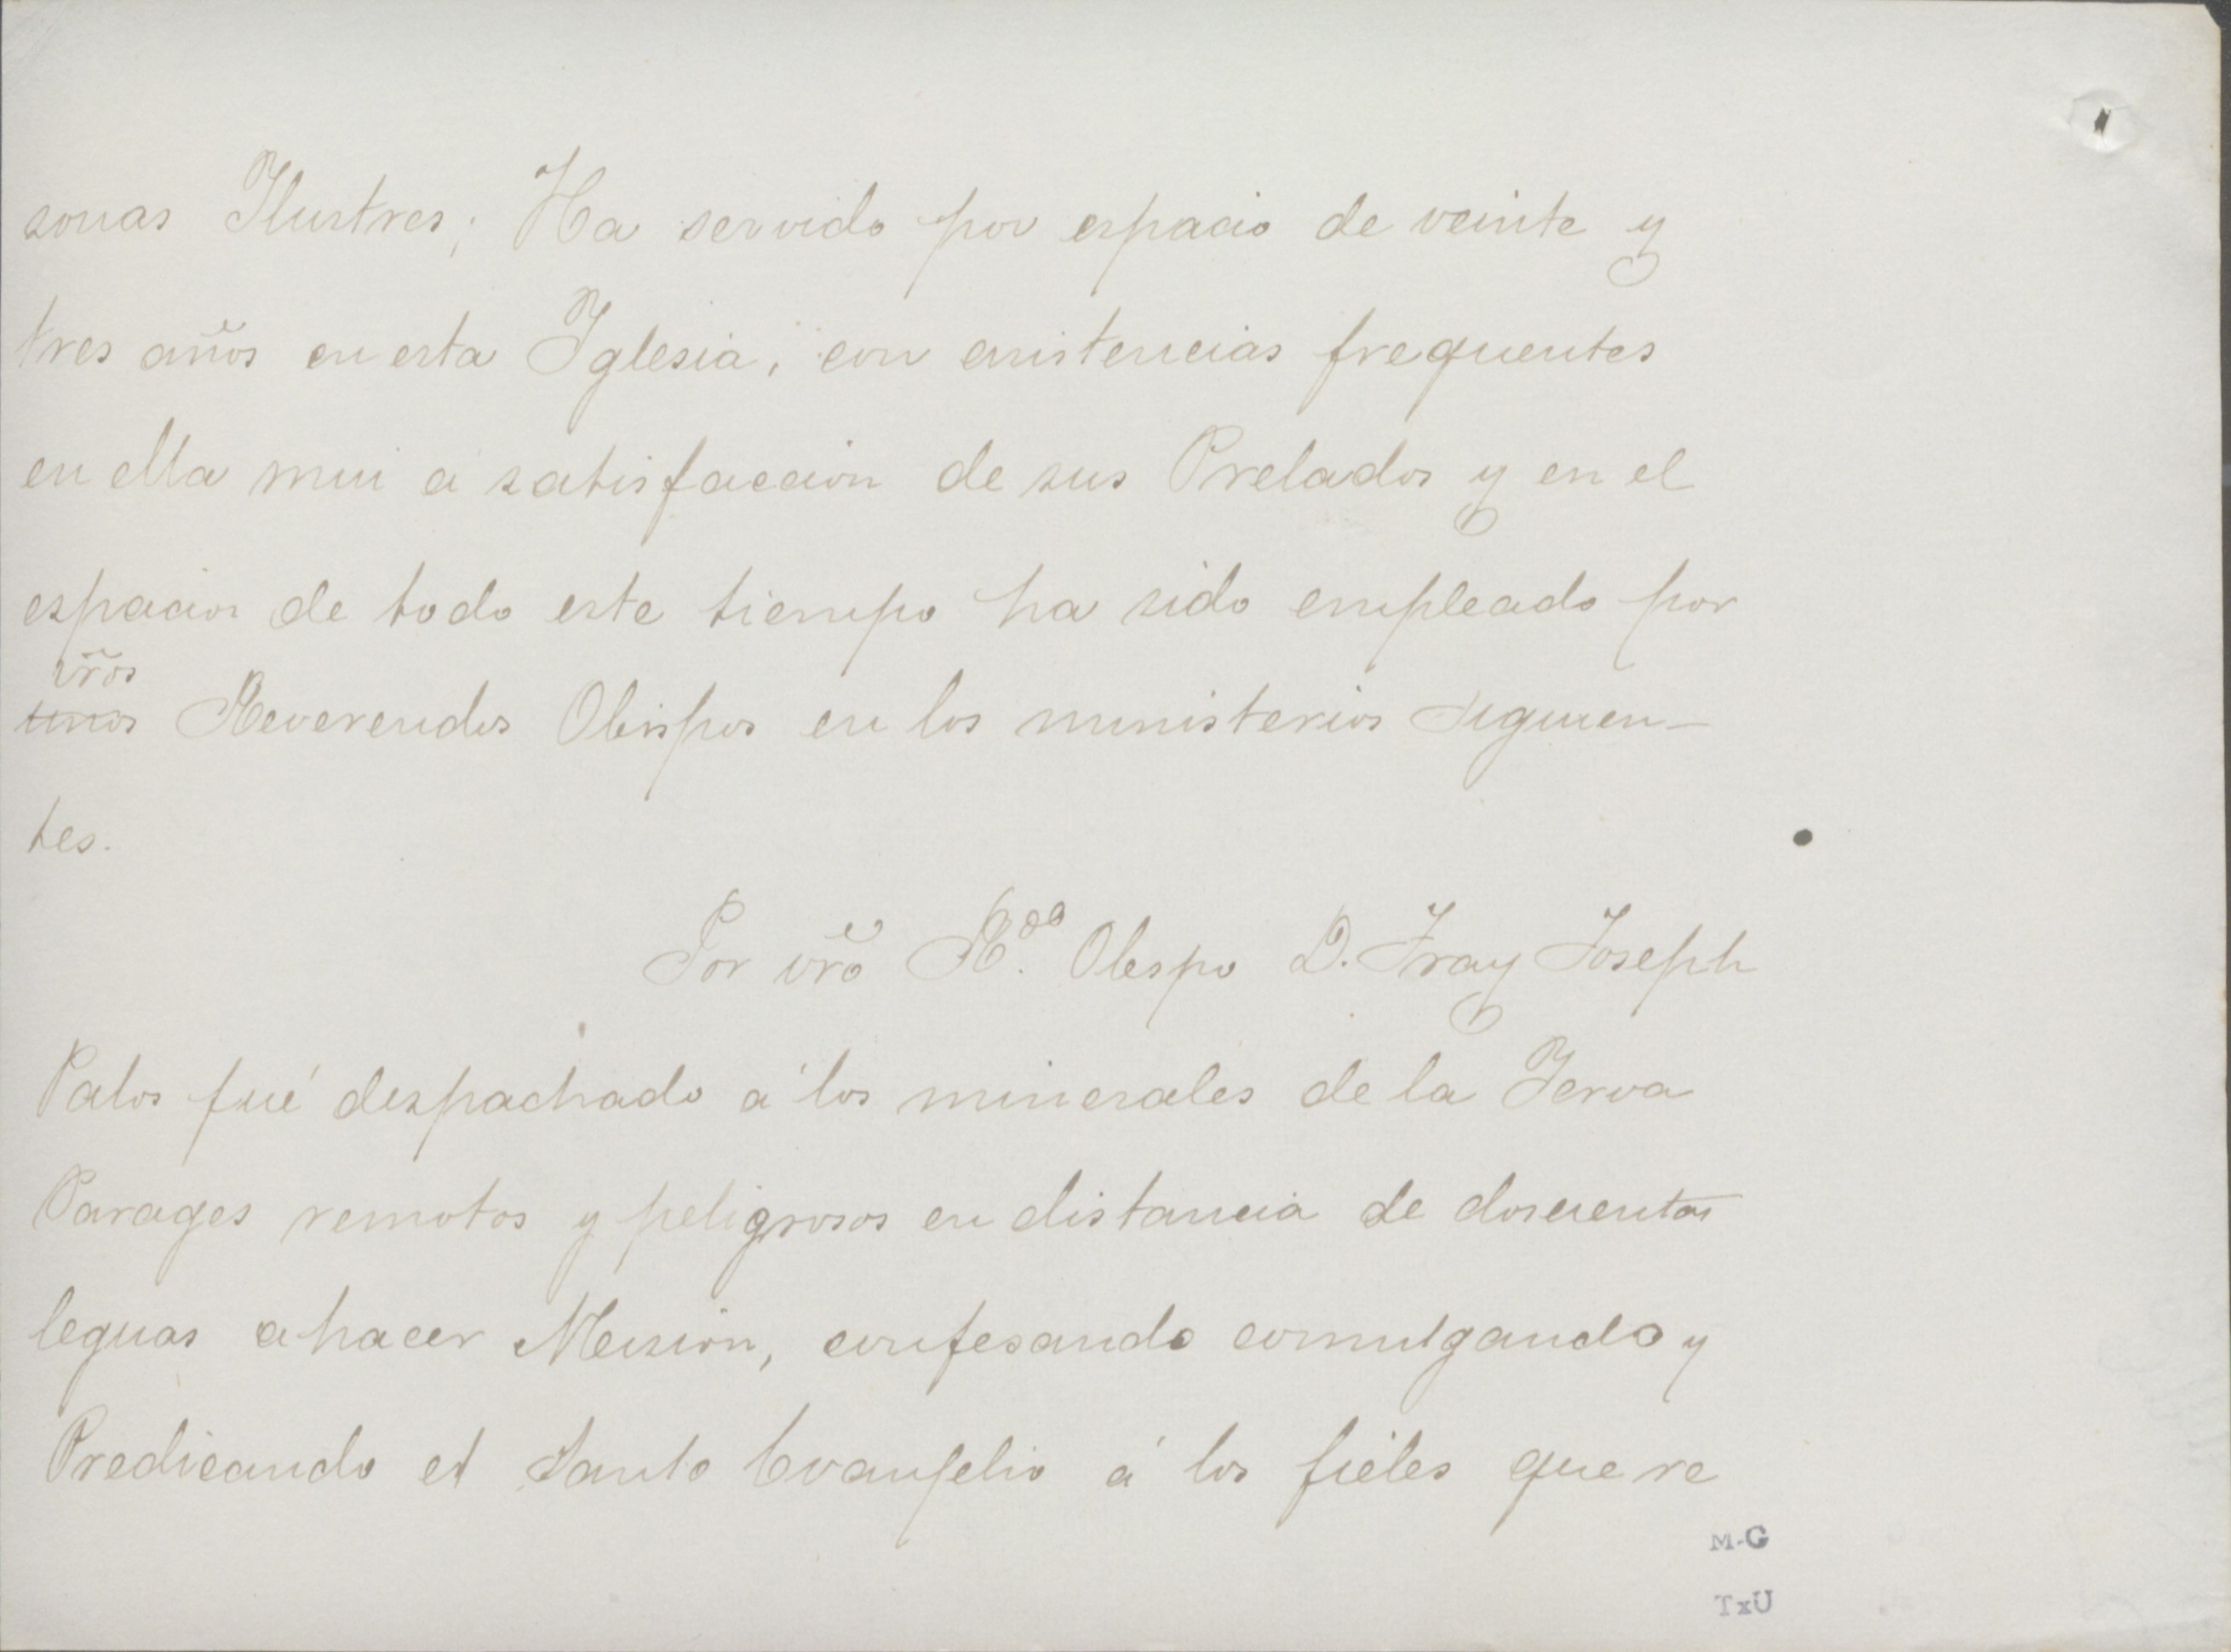 sonas Ilustres; Ha servido por espacio de veinte y
tres años en esta Iglesia, con asistencias frequentes
en ella mui a satisfaccion de sus Prelados y en el
espacio de todo este tiempo ha sido empleado por
vr̃os
unos Reverendos Obispos en los ministerios siguien-
tes.
Por vr̃o Rdo. Obispo D. Fray Joseph
Palos fué despachado á los minerales de la Jerva
Parages remotos y peligrosos en distancia de doscientas
leguas a hacer Mision, confesando comulgando y
Predicando el Santo Evangelio á los fieles que re
M-G
TxU